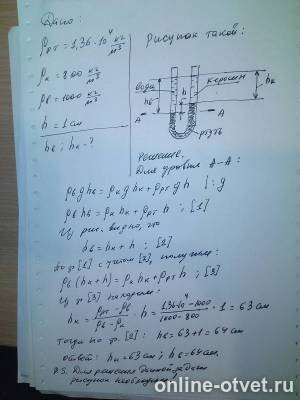 Дано:
ρрт = 1,36·10⁴ кг/м³
ρк = 800 кг/м³
ρв = 1000 кг/м³
h = 1 см
hв; hк - ?
Рисунок такой:
вода
керосин
hв
h
hк
A
A
ртуть
Решение.
Для уровня A-A:
ρв g hв = ρк g hк + ρрт g h | : g
ρв hв = ρк hк + ρрт h ; [1]
Из рис. видно, что
hв = hк + h ; [2]
из р. [1] с учетом [2], получим:
ρв (hк + h) = ρк hк + ρрт h ; [3]
Из р. [3] находим:
hк = (ρрт - ρв)/(ρв - ρк) · h = (1,36·10⁴ - 1000)/(1000 - 800) · 1 = 63 см
тогда по р. [2]: hв = 63 + 1 = 64 см
ответ: hк = 63 см; hв = 64 см.
P.S. Для решения данной задачи
рисунок необходим.
online-otvet.ru